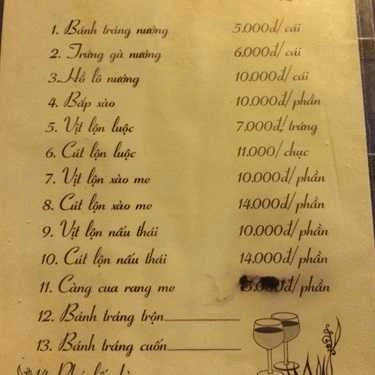 1. Bánh tráng nướng 5.000đ/ cái
2. Trứng gà nướng 6.000đ/ cái
3.Hồ lô nướng 10.000đ/ cái
4. Bắp xào 10.000đ/ phần
5. Vịt lộn luộc 7.000đ/ trứng
6. Cút lộn luộc 11.000/ chục
7. Vịt lộn xào me 10.000đ/ phần
8. Cút lộn xào me 14.000đ/ phần
9. Vịt lộn nấu thái 10.000đ/ phần
10. Cút lộn nấu thái 14.000đ/ phần
11. Càng cua rang me 5.000đ/ phần
12. Bánh tráng trộn
13. Bánh tráng cuốn
14.